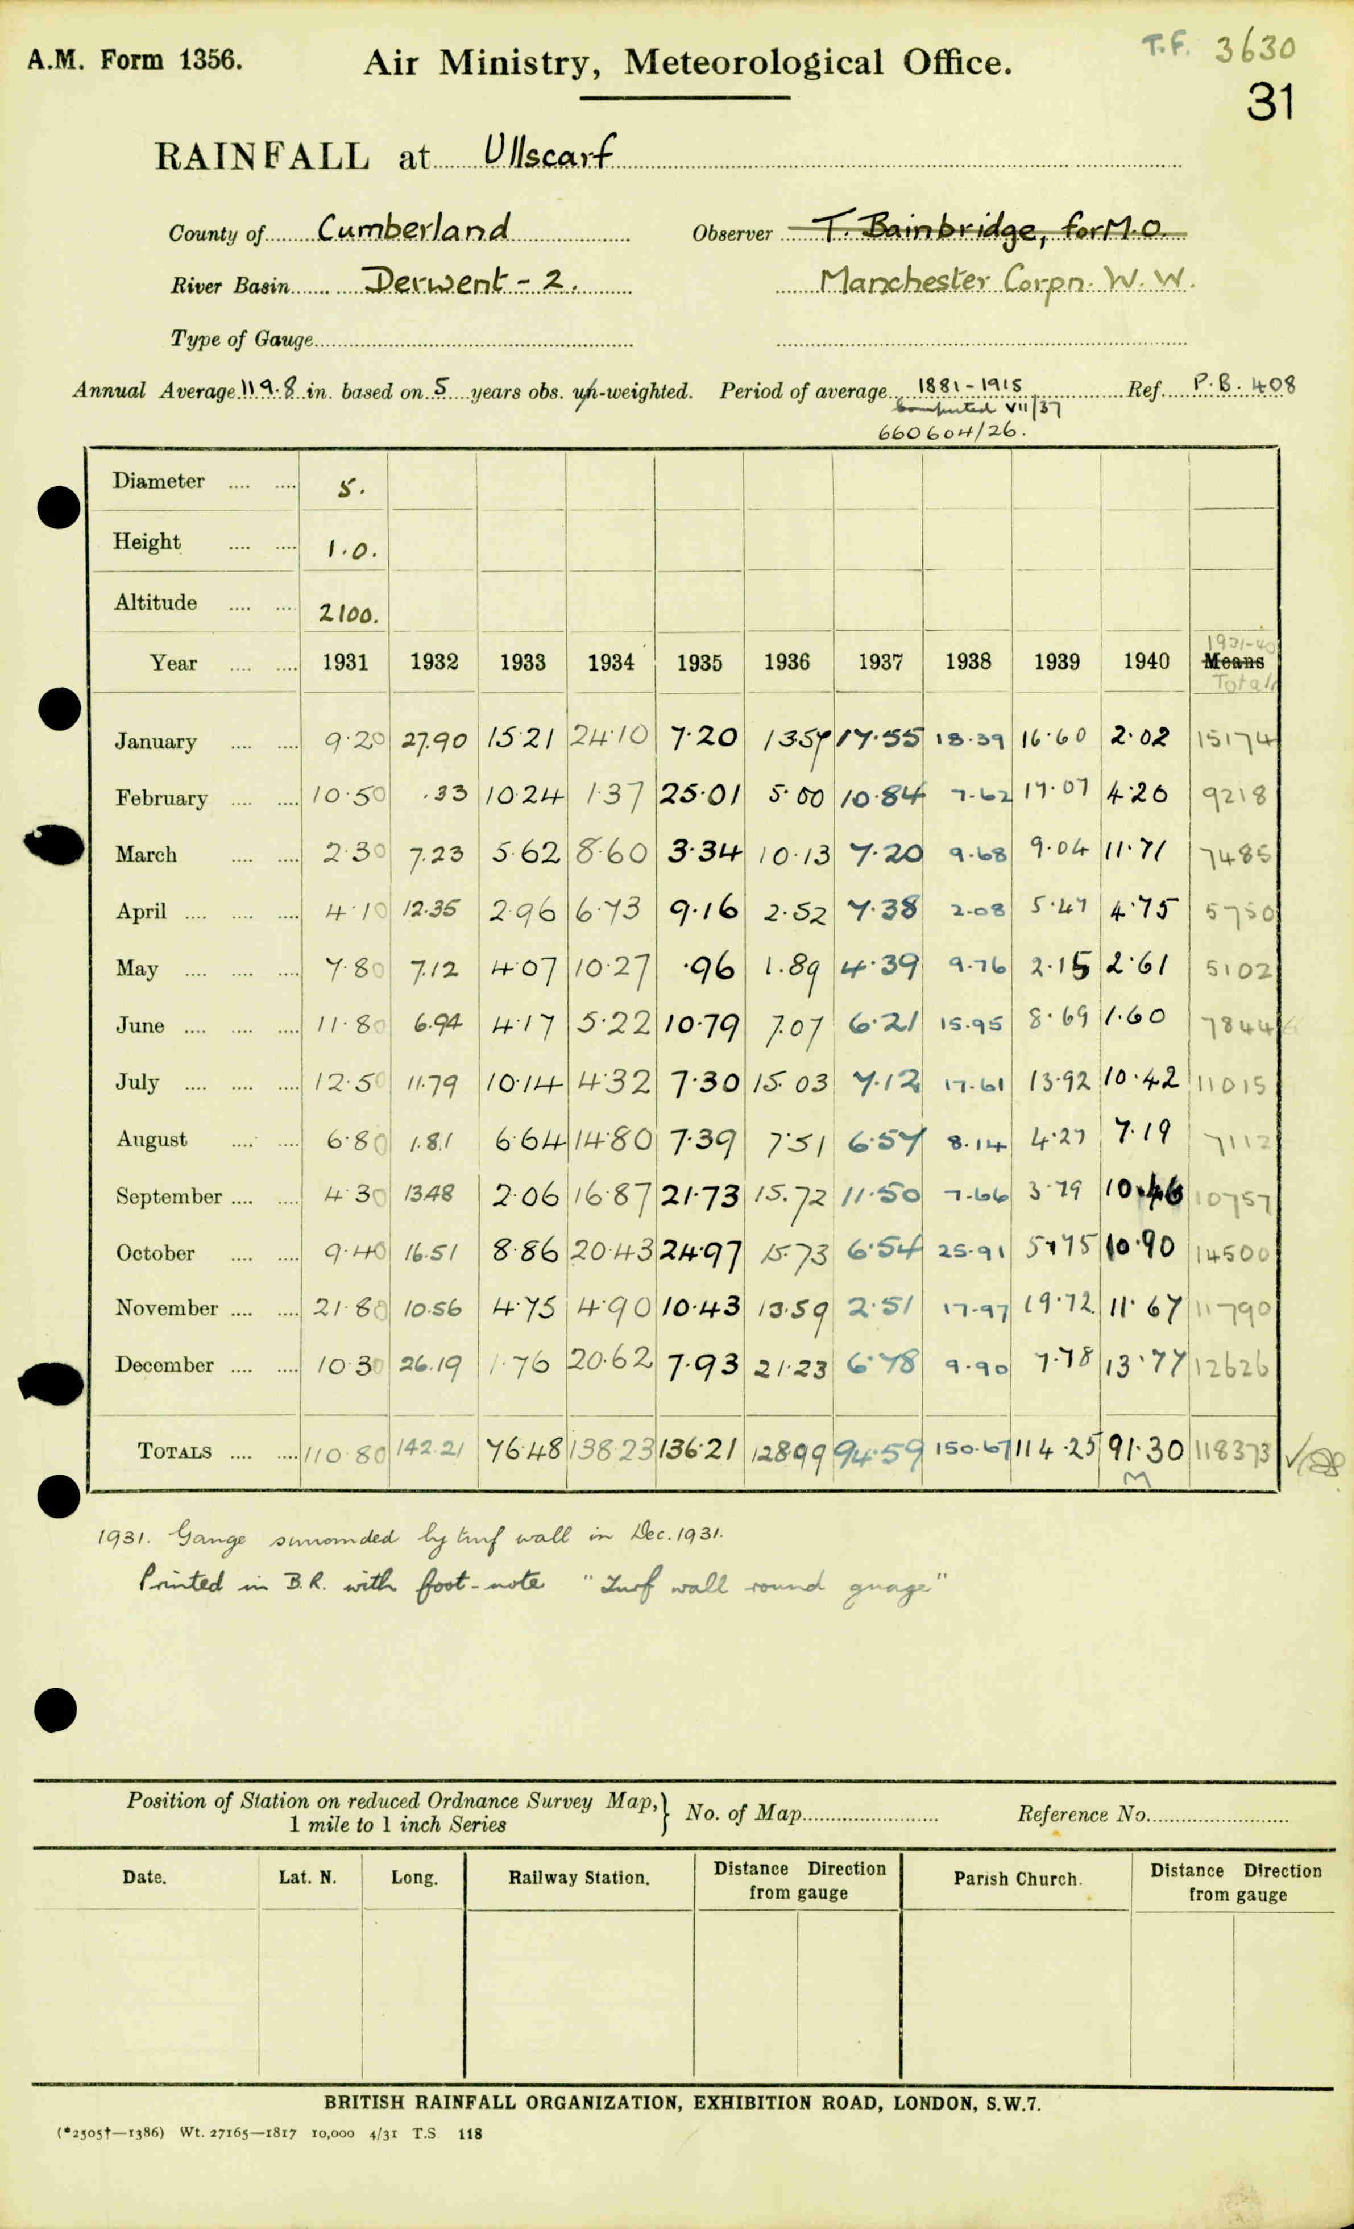 A.M. Form 1356. Air Ministry, Meteorological Office. T.F. 3630
31
RAINFALL at Ullscarf
County of Cumberland Observer T. Bainbridge, for M.O.
River Basin Derwent - 2. Manchester Corpn. W. W.
Type of Gauge
Annual Average 119.8 in. based on 5 years obs. un-weighted. Period of average 1881-1915 Ref. P.B. 408
Computed VII/37
660604/26.
Diameter 5.
Height 1.0.
Altitude 2100.
1931-40
Year 1931 1932 1933 1934 1935 1936 1937 1938 1939 1940 Means
Totals
January 9.20 27.90 15.21 24.10 7.20 13.57 17.55 18.39 16.60 2.02 15174
February 10.50 .33 10.24 1.37 25.01 5.00 10.84 7.62 17.07 4.20 9218
March 2.30 7.23 5.62 8.60 3.34 10.13 7.20 9.68 9.04 11.71 7485
April 4.10 12.35 2.96 6.73 9.16 2.52 7.38 2.08 5.47 4.75 5750
May 7.80 7.12 4.07 10.27 .96 1.89 4.39 9.76 2.15 2.61 5102
June 11.80 6.94 4.17 5.22 10.79 7.07 6.21 15.95 8.69 1.60 7844
July 12.50 11.79 10.14 4.32 7.30 15.03 7.12 17.61 13.92 10.42 11015
August 6.80 1.81 6.64 14.80 7.39 7.51 6.57 8.14 4.27 7.19 7112
September 4.30 13.48 2.06 16.87 21.73 15.72 11.50 7.66 3.79 10.46 10757
October 9.40 16.51 8.86 20.43 24.97 15.73 6.54 25.91 5.75 10.90 14500
November 21.80 10.56 4.75 4.90 10.43 13.59 2.51 17.97 19.72 11.67 11790
December 10.30 26.19 1.76 20.62 7.93 21.23 6.78 9.90 7.78 13.77 12626
TOTALS 110.80 142.21 76.48 138.23 136.21 128.99 94.59 150.67 114.25 91.30 118373
M
1931. Gauge surrounded by turf wall in Dec. 1931.
Printed in B.R. with foot-note "Turf wall round guage"
Position of Station on reduced Ordnance Survey Map, No. of Map Reference No.
1 mile to 1 inch Series
Date. Lat. N. Long. Railway Station. Distance Direction from gauge Parish Church. Distance Direction from gauge
BRITISH RAINFALL ORGANIZATION, EXHIBITION ROAD, LONDON, S.W.7.
(*2505†—1386) Wt. 27165—1817 10,000 4/31 T.S 118